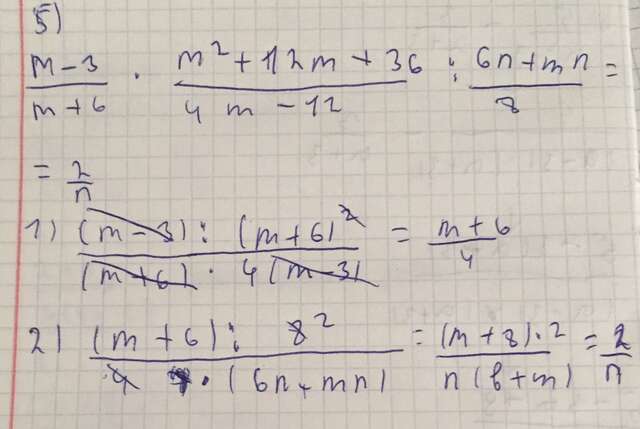 5)
m-3/m+6 · m²+12m+36/4m-12 : 6n+mn/8 =
= 2/n
1) (m-3) : (m+6)²/(m+6) · 4(m-3) = m+6/4
2) (m+6) : 8 2/4 · (6n+mn) = (m+8)·2/n(6+m) = 2/n